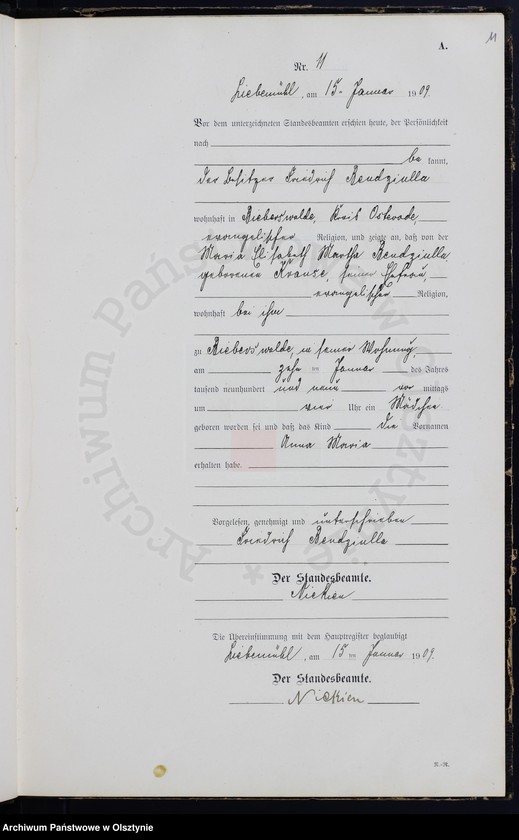 11
A.
Nr. 11
Liebemühl, am 15ten Januar 1909.
Vor dem unterzeichneten Standesbeamten erschien heute, der Persönlichkeit
nach
be kannt,
der Besitzer Friedrich Bendziulla
wohnhaft in Bieberswalde, Kreis Osterode,
evangelischer Religion, und zeigte an, daß von der
Maria Elisabeth Martha Bendziulla
geborenen Krause, seiner Ehefrau,
evangelischer Religion,
wohnhaft bei ihm
zu Bieberswalde, in seiner Wohnung,
am zehn ten Januar des Jahres
tausend neunhundert und neun vor mittags
um vier Uhr ein Mädchen
geboren worden sei und daß das Kind die Vornamen
Anna Maria
erhalten habe.
Vorgelesen, genehmigt und unterschrieben
Friedrich Bendziulla
Der Standesbeamte.
Nickien
Die Übereinstimmung mit dem Hauptregister beglaubigt
Liebemühl, am 15 ten Januar 1909.
Der Standesbeamte.
Nickien
N.-R.
Archiwum Państwowe w Olsztynie *
Archiwum Państwowe w Olsztynie